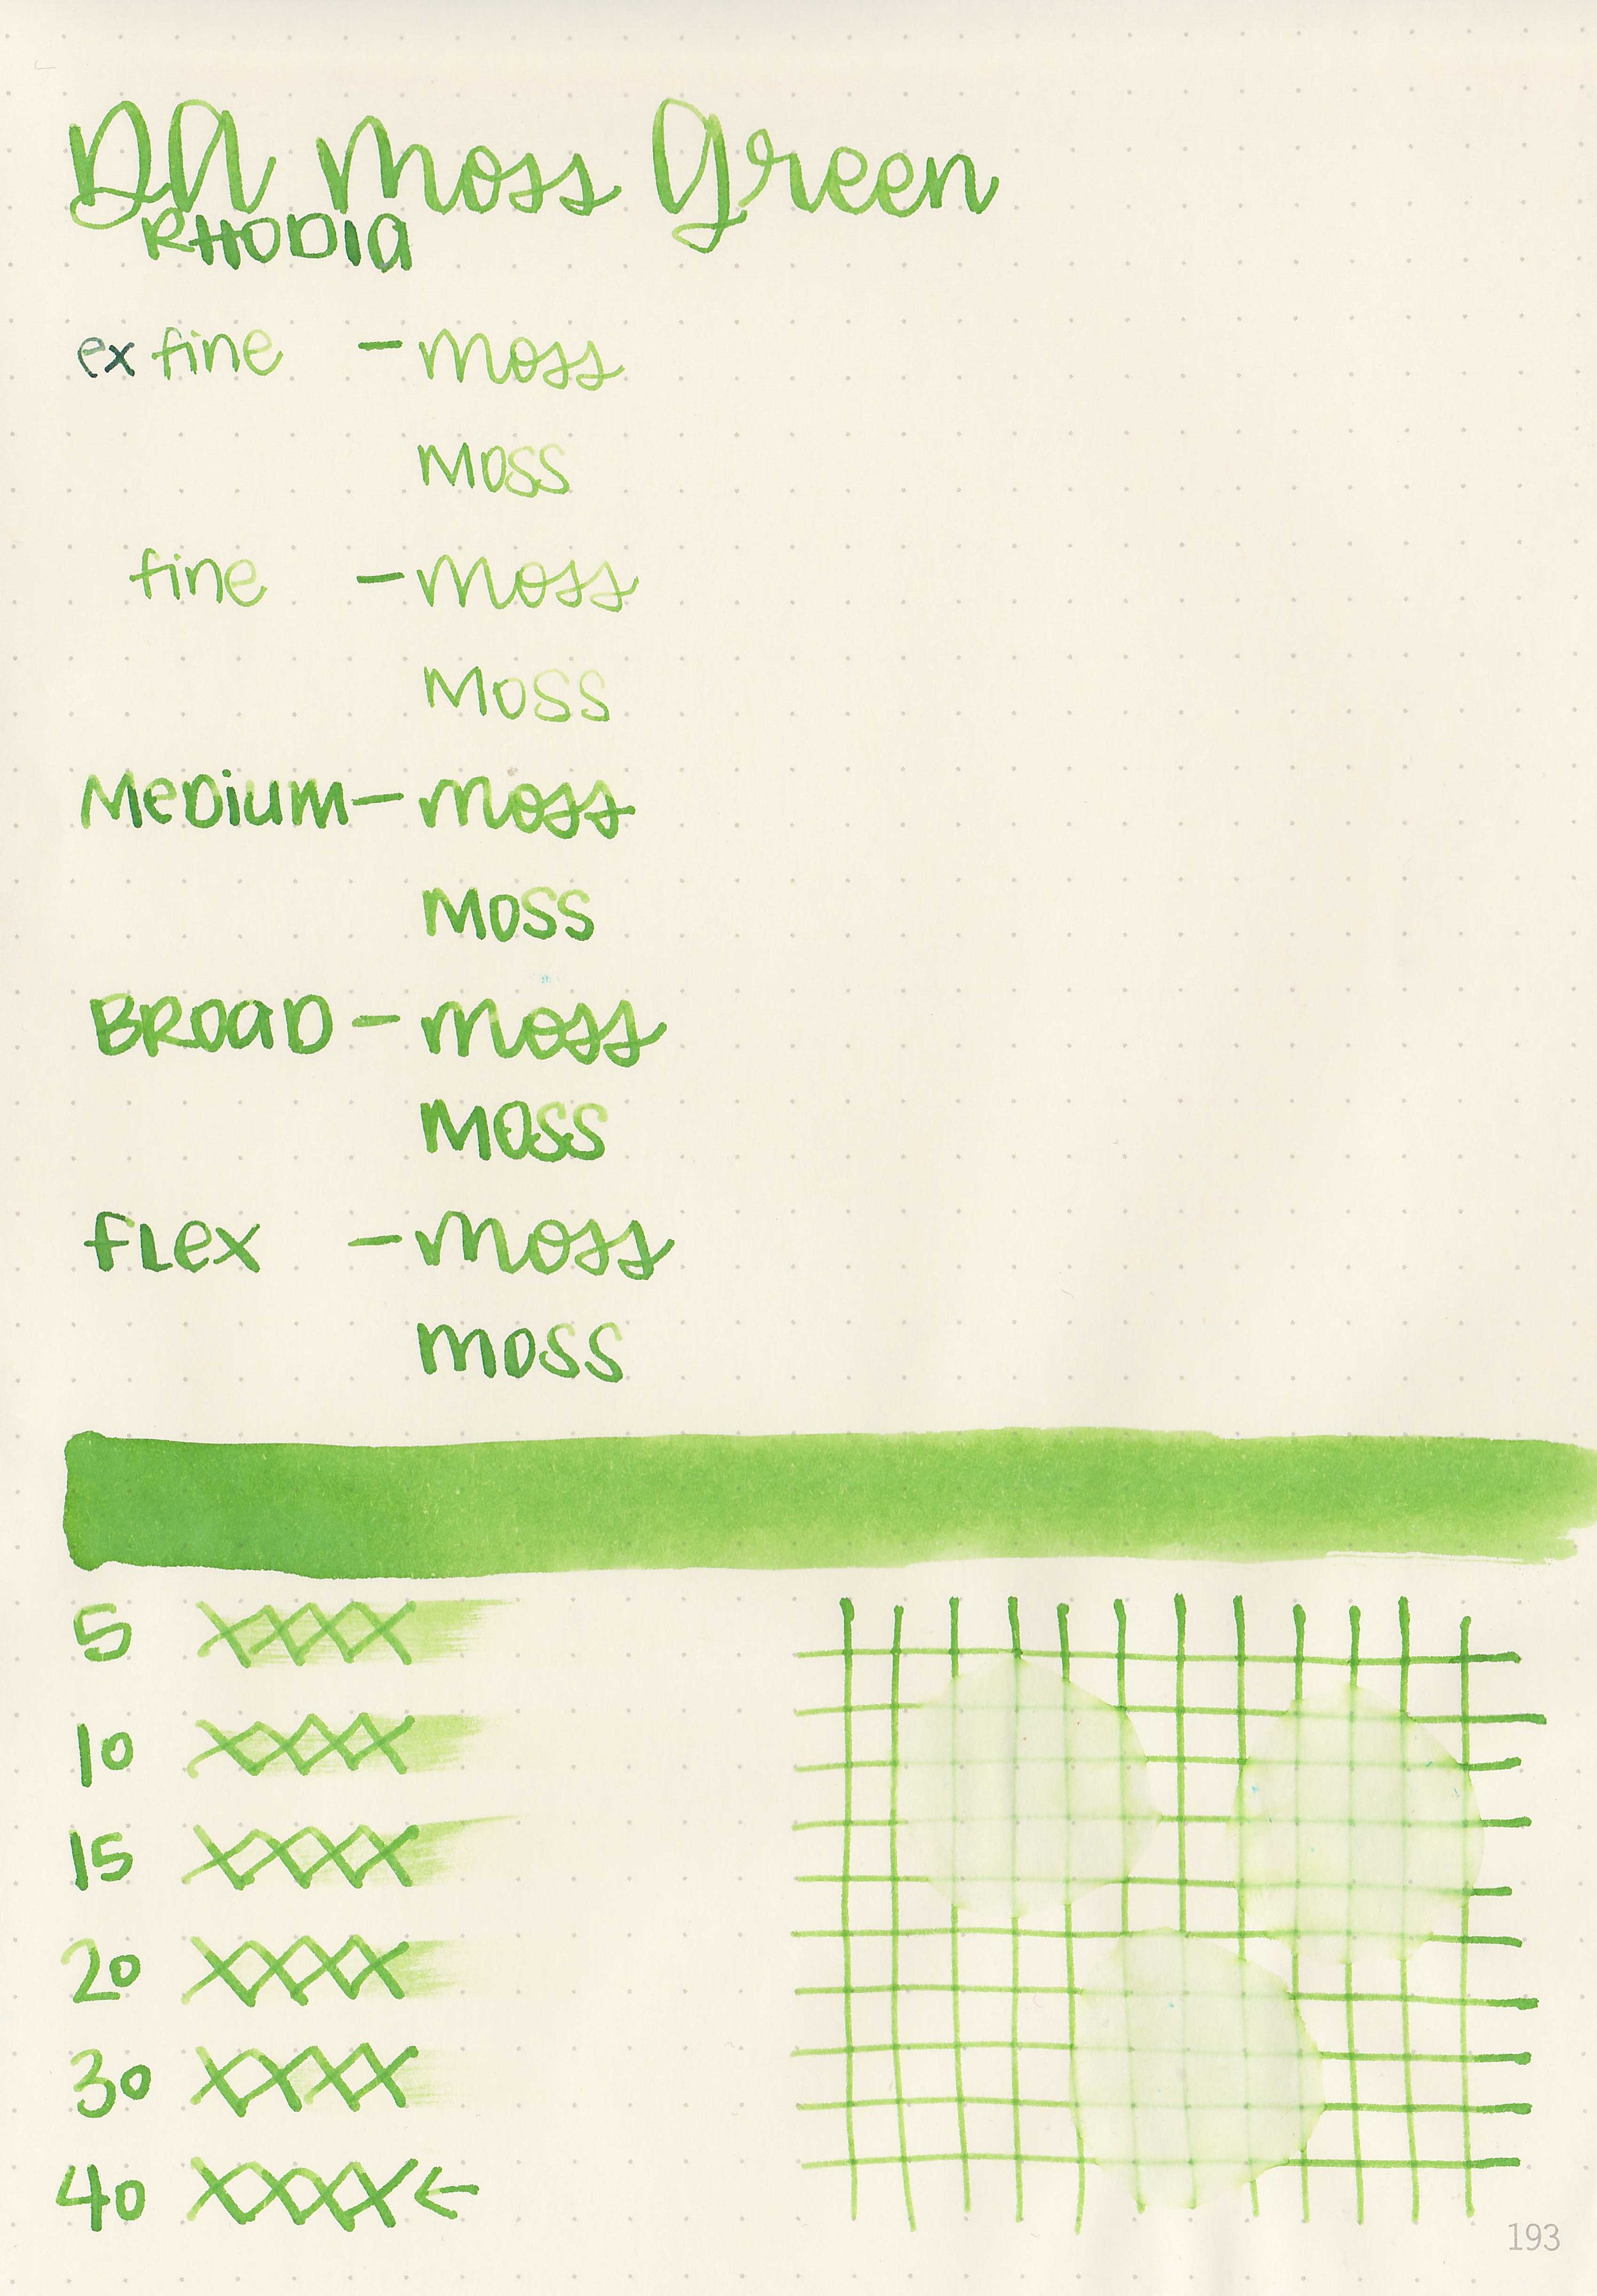 DA Moss Green
RHODIA
ex fine - moss
moss
fine - moss
moss
MeDium - moss
moss
BROAD - moss
moss
FLex - moss
moss
5 XXXX
10 XXXX
15 XXXX
20 XXXX
30 XXXX
40 XXXX ←
193